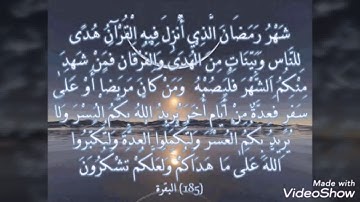 شَهْرُ رَمَضَانَ الَّذِي أُنْزِلَ فِيهِ الْقُرْآنُ هُدًى
لِلنَّاسِ وَبَيِّنَاتٍ مِنَ الْهُدَىٰ وَالْفُرْقَانِ فَمَنْ شَهِدَ
مِنْكُمُ الشَّهْرَ فَلْيَصُمْهُ وَمَنْ كَانَ مَرِيضًا أَوْ عَلَىٰ
سَفَرٍ فَعِدَّةٌ مِنْ أَيَّامٍ أُخَرَ يُرِيدُ اللَّهُ بِكُمُ الْيُسْرَ وَلَا
يُرِيدُ بِكُمُ الْعُسْرَ وَلِتُكْمِلُوا الْعِدَّةَ وَلِتُكَبِّرُوا
اللَّهَ عَلَىٰ مَا هَدَاكُمْ وَلَعَلَّكُمْ تَشْكُرُونَ
(185) البقرة
Made with
VideoShow